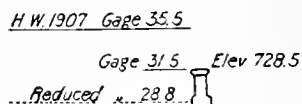 H.W. 1907 Gage 35.5
Gage 31.5 Elev 728.5
Reduced " 28.8